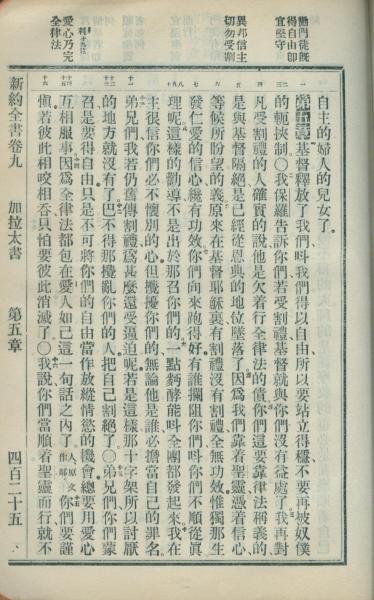 勸門徒旣
得自由卽
宜堅守
異邦信主
切勿受割
利十九之
愛心乃完
全律法
自主的婦人的兒女了。
第五章 基督釋放了我們呌我們得以自由所以要站立得穩不要再被奴僕
的軛挾制〇我保羅告訴你們若受割禮基督就與你們沒有益處了我再對
凡受割禮的人確實的說他是欠着行全律法的債你們這要靠律法稱義的
是與基督隔絕是已經從恩典的地位墜落了因爲我們靠着聖靈憑着信心
等候所盼望的義原來在基督耶穌裏有割禮沒有割禮全無功效惟獨那生
發仁愛的信心纔有功效你們向來跑得好有誰攔阻你們呌你們不順從眞
理呢這樣的勸導不是出於那召你們的一點麪酵能呌全團都發起來我在
主很信你們必不懷別的心但攪擾你們的無論他是誰必擔當自己的罪名
弟兄們我若仍舊傳割禮爲甚麼還受逼迫呢若是這樣那十字架所以討厭
的地方就沒有了巴不得那攪亂你們的人把自己割絕了〇弟兄們你們蒙
召是要得自由只是不可將你們的自由當作放縱情慾的機會總要用愛心
互相服事因爲全律法都包在愛人如己這一句話之內了人原文作鄰你們要謹
愼若彼此相咬相吞只怕要彼此消滅了〇我說你們當順着聖靈而行就不
新約全書卷九 加拉太書 第五章 四百二十五